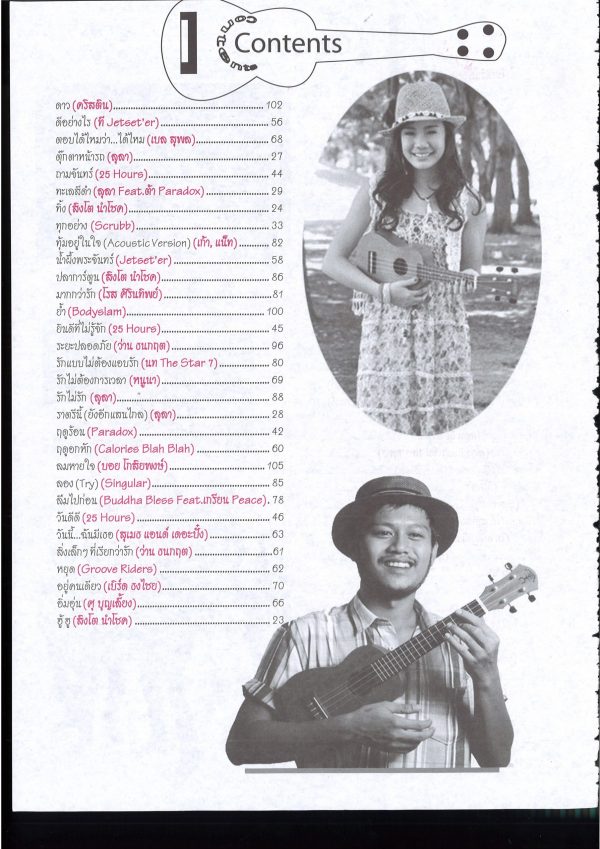 สารบัญเพลง
Contents
ดาว (คริสติน) 102
ดีอย่างไร (ที Jetset'er) 56
ตอบได้ไหมว่า...ได้ไหม (เบล สุพล) 68
ตุ๊กตาหน้ารถ (ลุลา) 27
ถามจันทร์ (25 Hours) 44
ทะเลสีดำ (ลุลา Feat.ต้า Paradox) 29
ทิ้ง (สิงโต นำโชค) 24
ทุกอย่าง (Scrubb) 33
ทุ้มอยู่ในใจ (Acoustic Version) (เก้า, แน็ท) 82
น้ำผึ้งพระจันทร์ (Jetset'er) 58
ปลาการ์ตูน (สิงโต นำโชค) 86
มากกว่ารัก (โรส ศิรินทิพย์) 81
ย้ำ (Bodyslam) 100
ยินดีที่ไม่รู้จัก (25 Hours) 45
ระยะปลอดภัย (ว่าน ธนกฤต) 96
รักแบบไม่ต้องแอบรัก (นท The Star 7) 80
รักไม่ต้องการเวลา (หนูนา) 69
รักไม่รัก (ลุลา) 88
ราตรีนี้ (ยังอีกแสนไกล) (ลุลา) 28
ฤดูร้อน (Paradox) 42
ฤดูอกหัก (Calories Blah Blah) 60
ลมหายใจ (บอย โกสิยพงษ์) 105
ลอง (Try) (Singular) 85
ลืมไปก่อน (Buddha Bless Feat.เกรียน Peace) 78
วันดีดี (25 Hours) 46
วันนี้...ฉันมีเธอ (สุเมธ แอนด์ เดอะปั๋ง) 63
สิ่งเล็กๆ ที่เรียกว่ารัก (ว่าน ธนกฤต) 61
หยุด (Groove Riders) 62
อยู่คนเดียว (เบิร์ด ธงไชย) 70
อิ่มอุ่น (ศุ บุญเลี้ยง) 66
ฮู้ ฮู (สิงโต นำโชค) 23